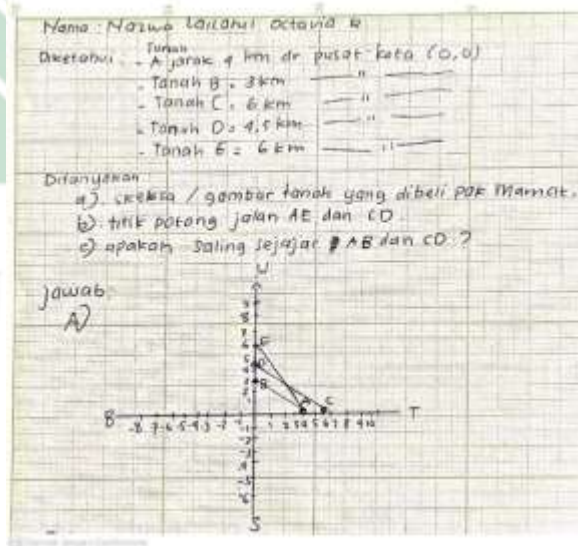 Nama : Nazwa Lailatul Octavia R
Diketahui : - Tanah A jarak 4 km dr pusat kota (0,0)
- Tanah B = 3 km ——— " ———
- Tanah C = 6 km ——— " ———
- Tanah D = 4,5 km ——— " ———
- Tanah E = 6 km ——— " ———
Ditanyakan
a) skeksa / gambar tanah yang dibeli pak Mamat.
b) titik potong jalan AE dan CD
c) apakah saling sejajar AB dan CD ?
Jawab
A)
U
E
D
B
A C
B T
S